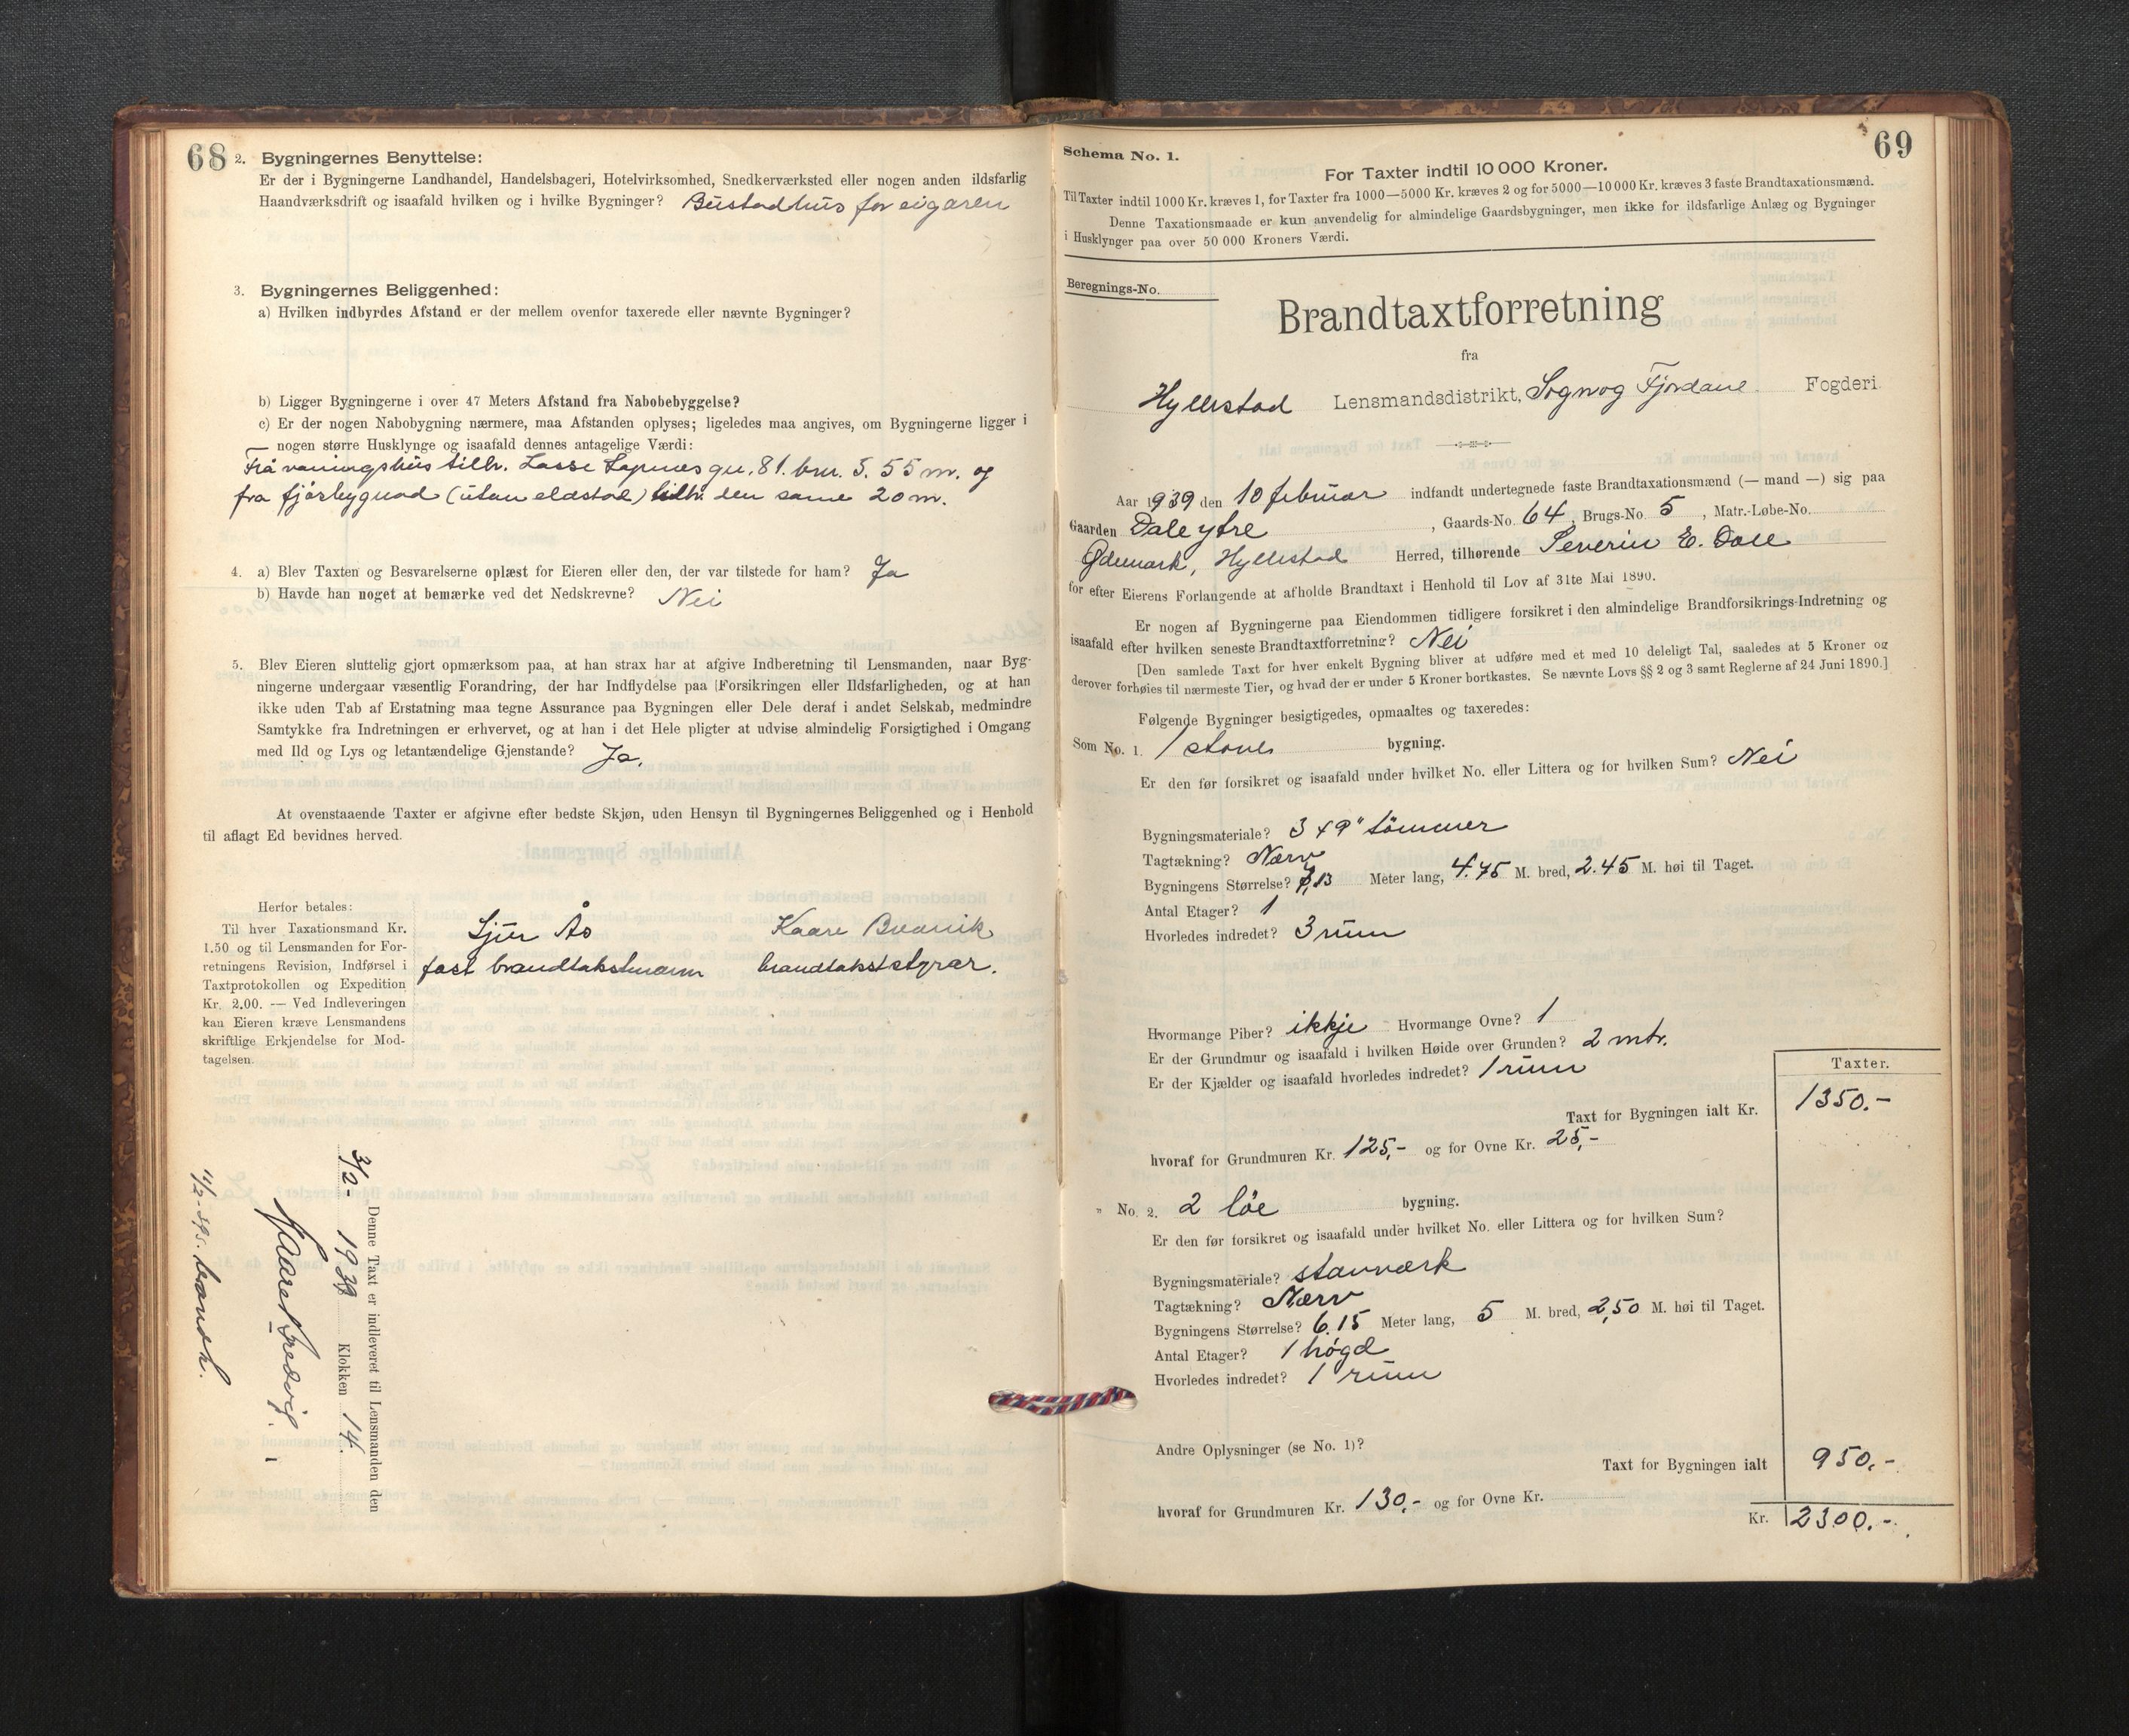 68
2. Bygningernes Benyttelse:
Er der i Bygningerne Landhandel, Handelsbageri, Hotelvirksomhed, Snedkerværksted eller nogen anden ildsfarlig
Haandværksdrift og isaafald hvilken og i hvilke Bygninger? Bustadhus for eigaren
3. Bygningernes Beliggenhed:
a) Hvilken indbyrdes Afstand er der mellem ovenfor taxerede eller nævnte Bygninger?
b) Ligger Bygningerne i over 47 Meters Afstand fra Nabobebyggelse?
c) Er der nogen Nabobygning nærmere, maa Afstanden oplyses; ligeledes maa angives, om Bygningerne ligger i
nogen større Husklynge og isaafald dennes antagelige Værdi:
Frå vaaningshus tilh. Lasse gn. 81. bnr. 5. 55 m. og
fra fjøsbygnad (utan eldstad) tilh. den same 20 m.
4. a) Blev Taxten og Besvarelserne oplæst for Eieren eller den, der var tilstede for ham? Ja
b) Havde han noget at bemærke ved det Nedskrevne? Nei
5. Blev Eieren sluttelig gjort opmærksom paa, at han strax har at afgive Indberetning til Lensmanden, naar Byg-
ningerne undergaar væsentlig Forandring, der har Indflydelse paa Forsikringen eller Ildsfarligheden, og at han
ikke uden Tab af Erstatning maa tegne Assurance paa Bygningen eller Dele deraf i andet Selskab, medmindre
Samtykke fra Indretningen er erhvervet, og at han i det Hele pligter at udvise almindelig Forsigtighed i Omgang
med Ild og Lys og letantændelige Gjenstande? Ja.
At ovenstaaende Taxter er afgivne efter bedste Skjøn, uden Hensyn til Bygningernes Beliggenhed og i Henhold
til aflagt Ed bevidnes herved.
Herfor betales:
Til hver Taxationsmand Kr.
1.50 og til Lensmanden for For-
retningens Revision, Indførsel i
Taxtprotokollen og Expedition
Kr. 2.00. — Ved Indleveringen
kan Eieren kræve Lensmandens
skriftlige Erkjendelse for Mod-
tagelsen.
Sjur Ås Kaare
fast brandtakstmann brandtakststyrar.
Denne Taxt er indleveret til Lensmanden den
3/2- 1939 Klokken 14.
Kaare
69
Schema No. 1.
For Taxter indtil 10 000 Kroner.
Til Taxter indtil 1000 Kr. kræves 1, for Taxter fra 1000—5000 Kr. kræves 2 og for 5000—10 000 Kr. kræves 3 faste Brandtaxationsmænd.
Denne Taxationsmaade er kun anvendelig for almindelige Gaardsbygninger, men ikke for ildsfarlige Anlæg og Bygninger
i Husklynger paa over 50 000 Kroners Værdi.
Beregnings-No.
Brandtaxtforretning
fra
Hyllestad Lensmandsdistrikt, Sogn og Fjordane Fogderi
Aar 1939 den 10 februar indfandt undertegnede faste Brandtaxationsmænd (— mand —) sig paa
Gaarden Dale ytre, Gaards-No. 64, Brugs-No. 5, Matr.-Løbe-No.
Ødemark, Hyllestad Herred, tilhørende Severin E. Dale
for efter Eierens Forlangende at afholde Brandtaxt i Henhold til Lov af 31te Mai 1890.
Er nogen af Bygningerne paa Eiendommen tidligere forsikret i den almindelige Brandforsikrings-Indretning og
isaafald efter hvilken seneste Brandtaxtforretning? Nei
[Den samlede Taxt for hver enkelt Bygning bliver at udføre med et med 10 deleligt Tal, saaledes at 5 Kroner og
derover forhøies til nærmeste Tier, og hvad der er under 5 Kroner bortkastes. Se nævnte Lovs §§ 2 og 3 samt Reglerne af 24 Juni 1890.]
Følgende Bygninger besigtigedes, opmaaltes og taxeredes:
Som No. 1. 1 stove bygning.
Er den før forsikret og isaafald under hvilket No. eller Littera og for hvilken Sum? Nei
Bygningsmateriale? 3 x 9" tömmer
Tagtækning? Nærv
Bygningens Størrelse? 7,13 Meter lang, 4.75 M. bred, 2.45 M. høi til Taget.
Antal Etager? 1
Hvorledes indredet? 3 rum
Hvormange Piber? ikkje Hvormange Ovne? 1
Er der Grundmur og isaafald i hvilken Høide over Grunden? 2 mtr.
Er der Kjælder og isaafald hvorledes indredet? 1 rum
Taxter.
Taxt for Bygningen ialt Kr. 1350.-
hvoraf for Grundmuren Kr. 125,- og for Ovne Kr. 25,-
" No. 2. 2 löe bygning.
Er den før forsikret og isaafald under hvilket No. eller Littera og for hvilken Sum?
Bygningsmateriale? stavværk
Tagtækning? Nærv
Bygningens Størrelse? 6.15 Meter lang, 5 M. bred, 2,50 M. høi til Taget.
Antal Etager? 1 högd
Hvorledes indredet? 1 rum
Andre Oplysninger (se No. 1)?
Taxt for Bygningen ialt 950.-
hvoraf for Grundmuren Kr. 130,- og for Ovne Kr.
Kr. 2300.-